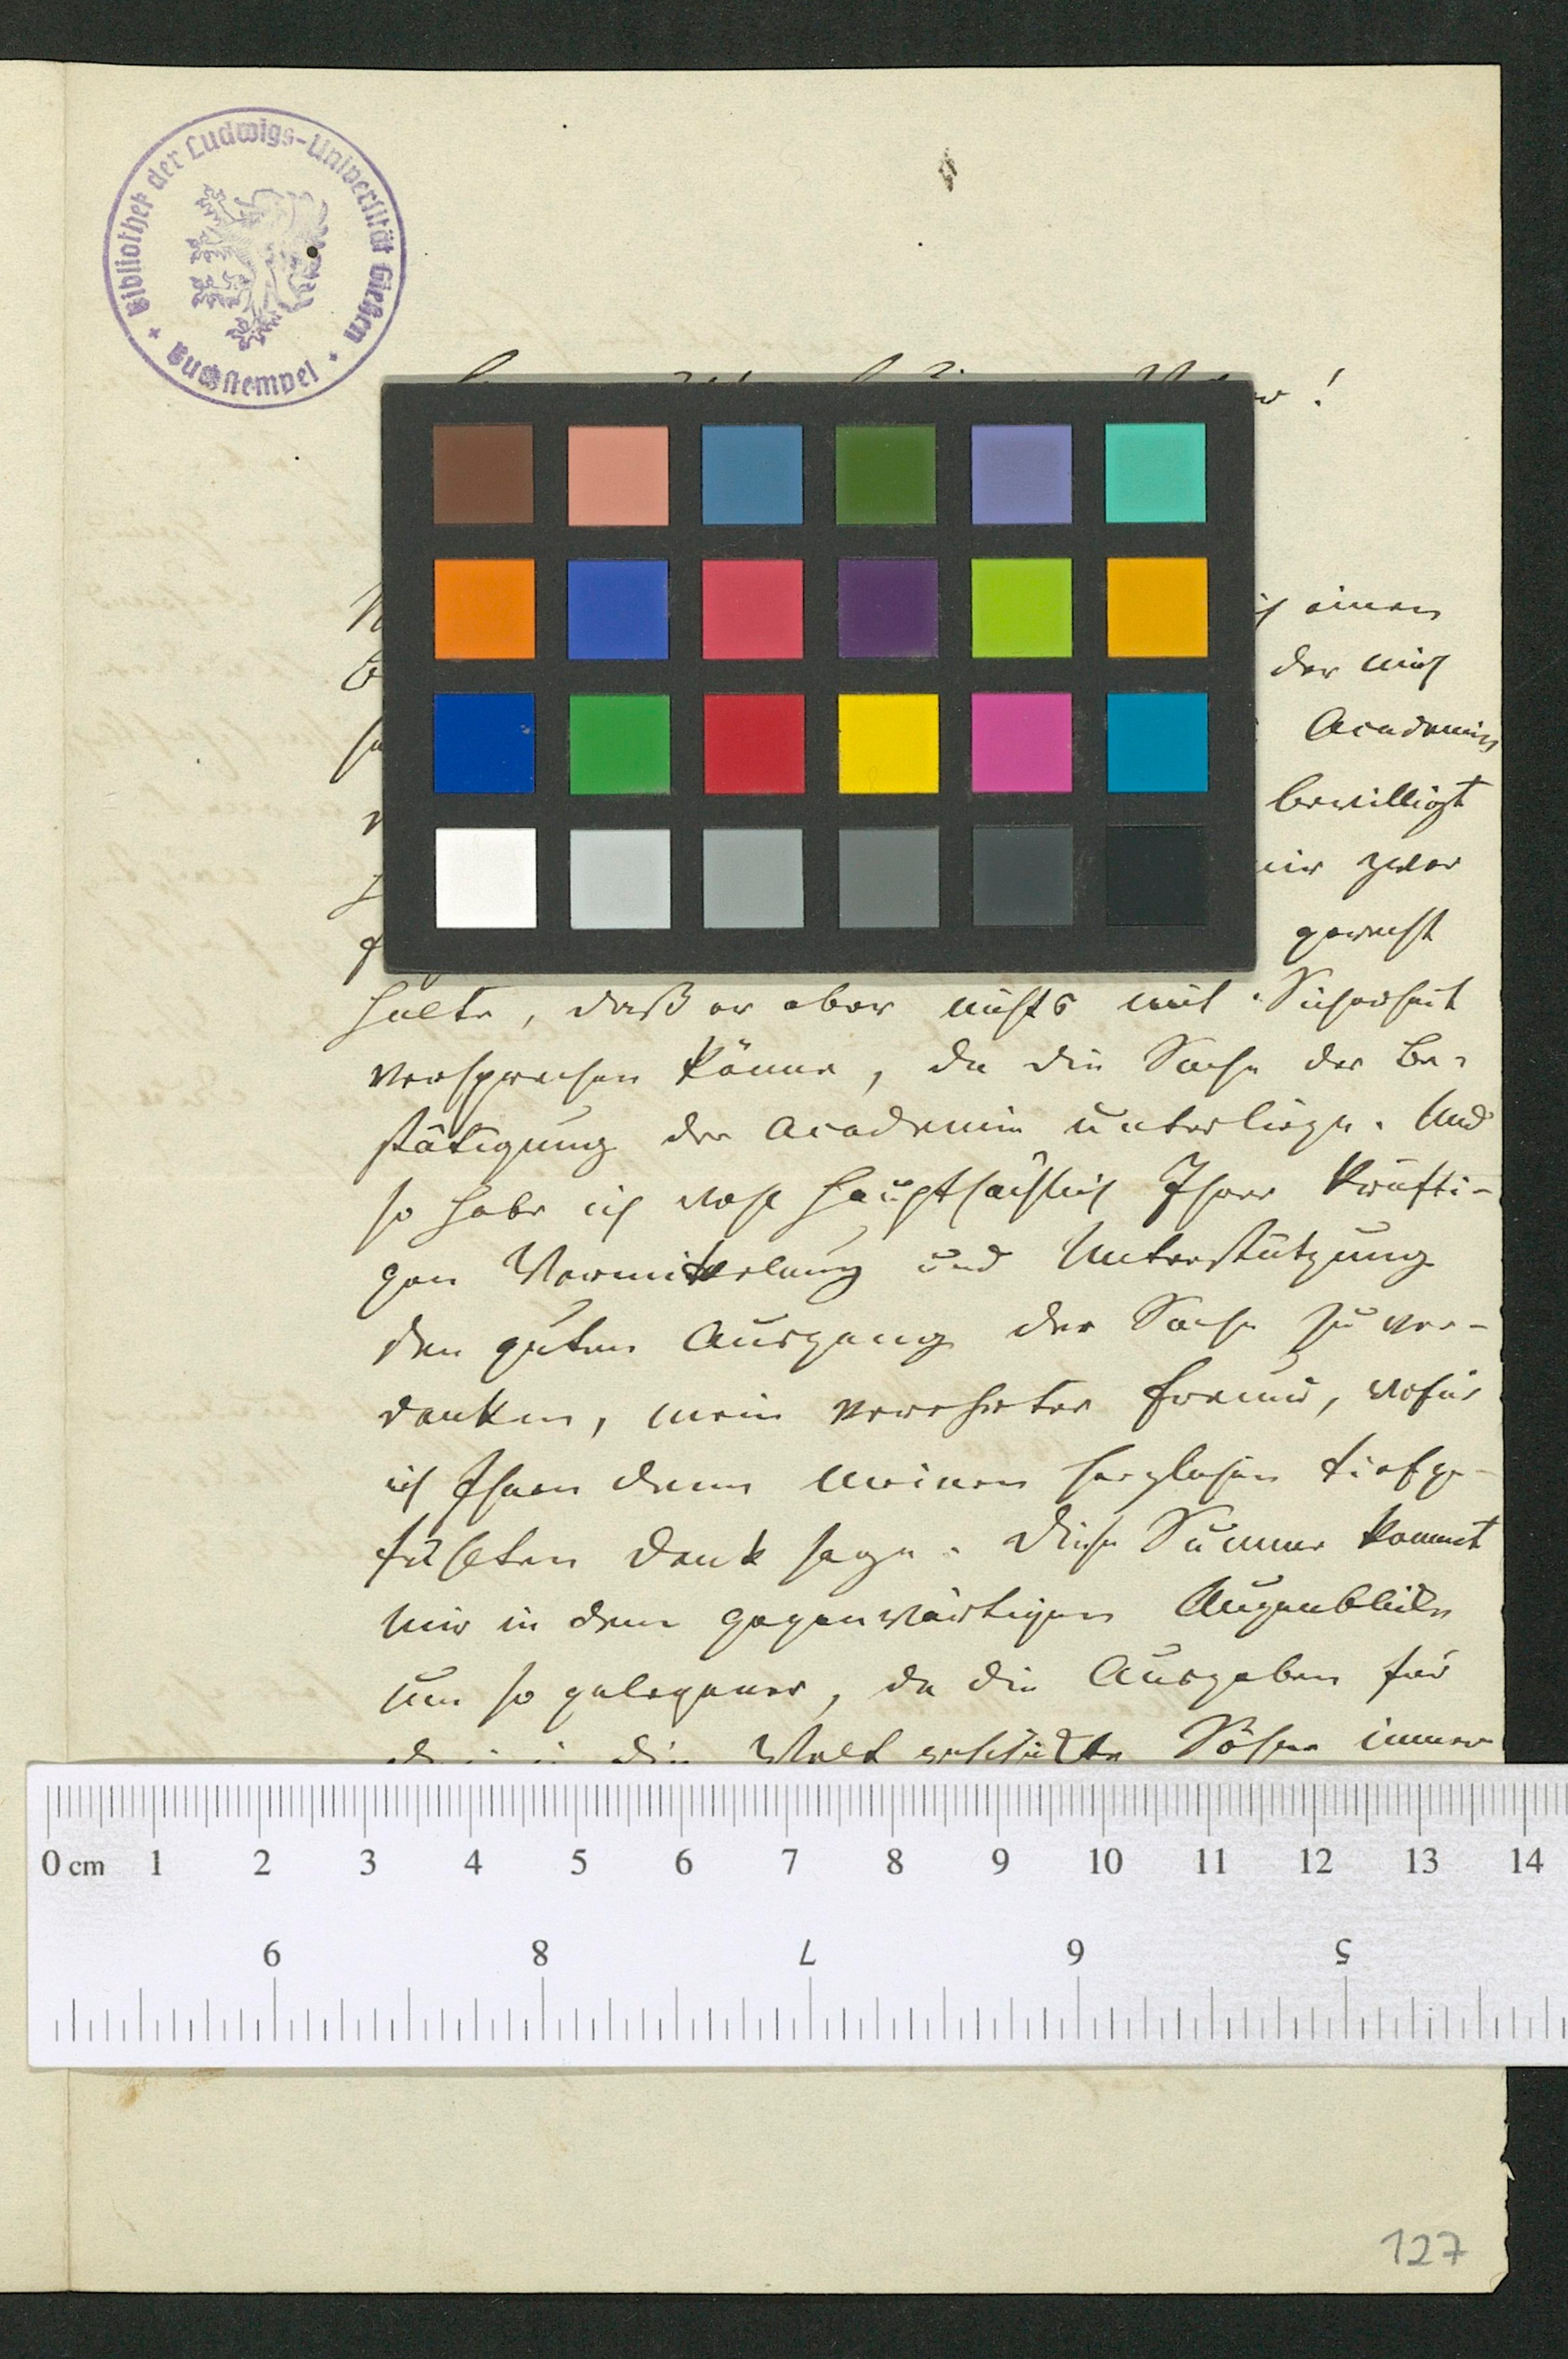 Bibliothek der Ludwigs-Universität Gießen
+ Buchstempel +
!
einen
der mich
Academie
bewilligt
mir zwar
gerecht
halte, daß er aber nichts mit Sicherheit
versprechen könne, da die Sache der Be-
stätigung der Academie unterliege. Und
so habe ich wohl hauptsächlich Ihrer kräfti-
gen Vermittelung und Unterstützung
den guten Ausgang der Sache zu ver-
danken, mein verehrter Freund, wofür
ich Ihnen denn meinen herzlichen tiefge-
fühlten Dank sage. Diese Summe kommt
mir in dem gegenwärtigen Augenblicke
um so gelegener, da die Ausgaben für
die Welt geschickte Söhne immer
0 cm 1 2 3 4 5 6 7 8 9 10 11 12 13 14
9 8 7 6 5
127